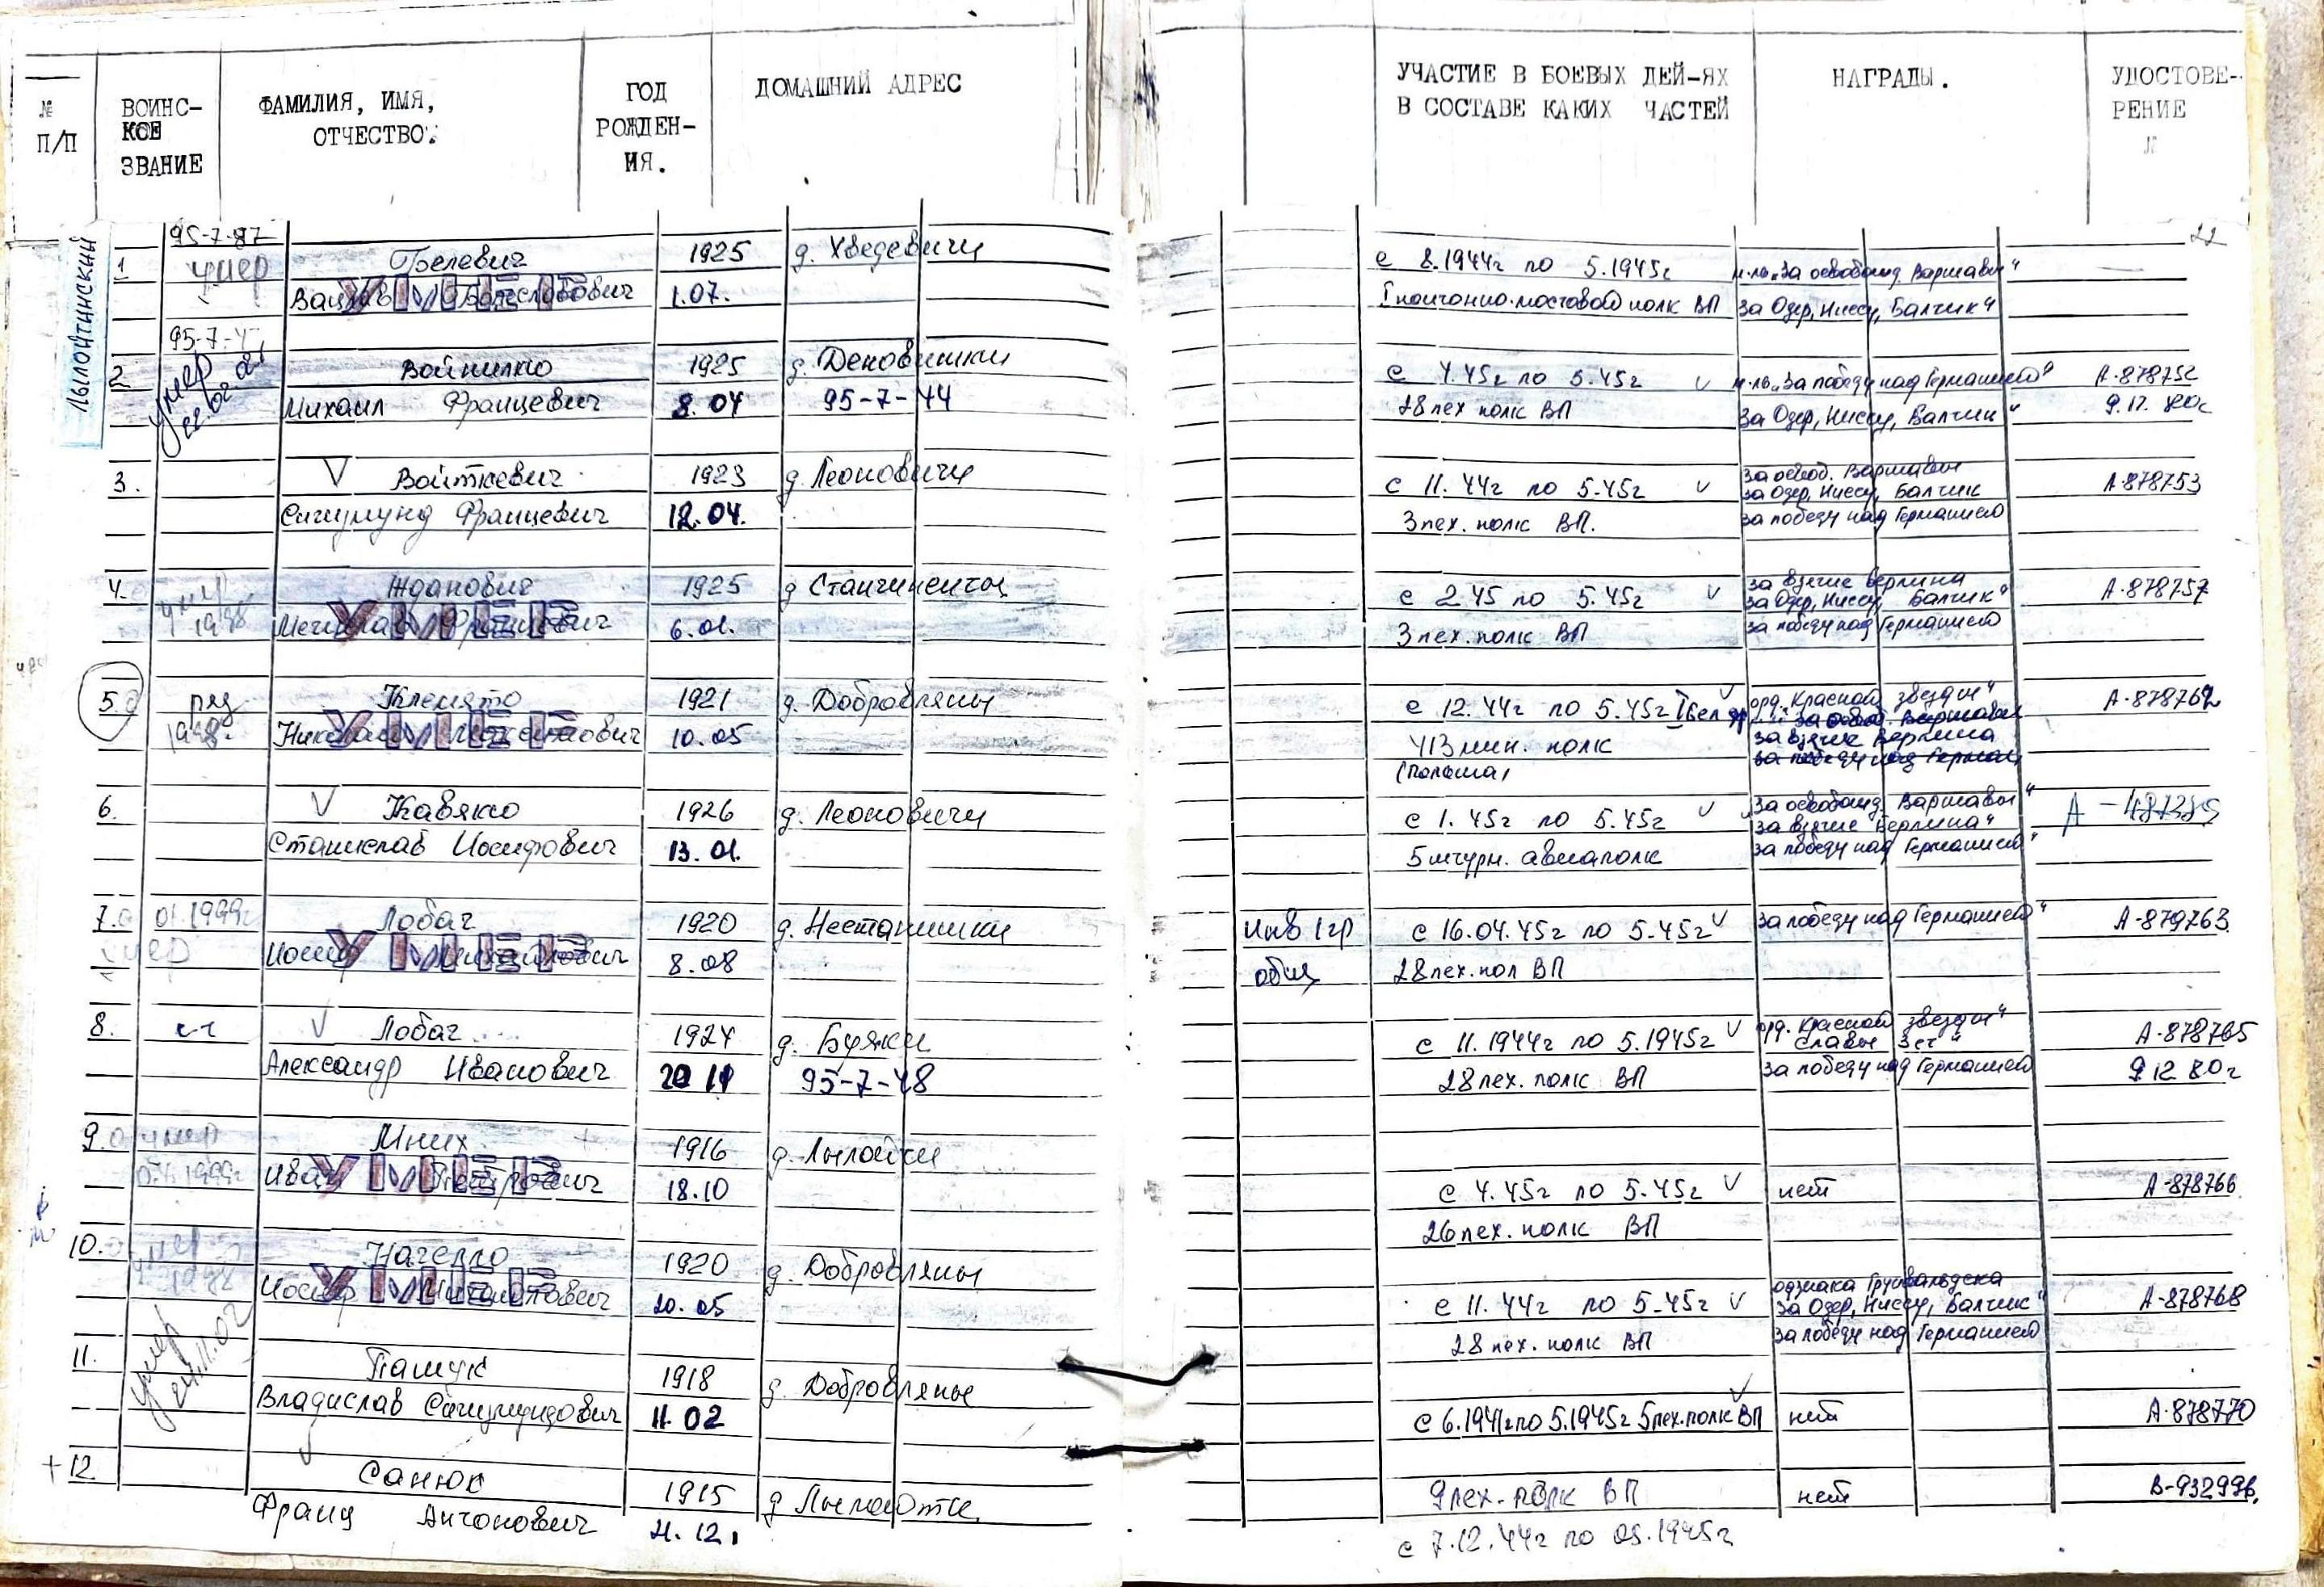 № П/П
ВОИНС-
КОЕ
ЗВАНИЕ
ФАМИЛИЯ, ИМЯ,
ОТЧЕСТВО.
ГОД
РОЖДЕН-
ИЯ.
ДОМАШНИЙ АДРЕС
УЧАСТИЕ В БОЕВЫХ ДЕЙ-ЯХ
В СОСТАВЕ КАКИХ ЧАСТЕЙ
НАГРАДЫ.
УДОСТОВЕ-
РЕНИЕ
№
22
95-7-87
1 умер Грелевич 1925 д. Хведевичи с 8.1944г по 5.1945г м-ль „За освобожд. Варшавы"
УМЕР 1.07. I понтонно-мостовой полк ВП за Одер, Ниссу, Балтик"
2 умер Войнилко 1925 д. Деновишки с 4.45г по 5.45г м-ль „За победу над Германией" А-878752
Михаил Францевич 8.04 95-7-44 28 пех полк ВП за Одер, Ниссу, Балтик" 80г
3. Войткевич 1923 д. Леоновичи с 11.44г по 5.45г за освоб. Варшавы А-878753
за Одер, Ниссу, Балтик
Сигизмунд Францевич 12.04. 3 пех. полк ВП. за победу над Германией
4. умер Жданович 1925 д с 2.45 по 5.45г за взятие Берлина А-878757
за Одер, Ниссу, Балтик"
1998 УМЕР 6.01. 3 пех. полк ВП за победу над Германией
5 ряд 1921 д. Добровляны с 12.44г по 5.45г I Бел фр орд. „Красной звезды"
УМЕР 10.05 413 мин. полк за взятие Берлина
(Польша) за победу над Герман.
6. Кавяко 1926 д. Леоновичи с 1.45г по 5.45г „За освобожд. Варшавы"
„за взятие Берлина"
Станислав Иосифович 13.01. 5 штурм. авиаполк за победу над Германией"
7. 01.1999г Лобач 1920 д. Нестанишки Инв 1гр с 16.04.45г по 5.45г За победу над Германией" А-879763
умер Иосиф УМЕР 8.08 общ 28 пех. пол ВП
8. Лобач 1924 д. Буяки с 11.1944г по 5.1945г орд. Красной звезды" А-878765
Славы 3 ст"
Александр Иванович 20 11 95-7-48 28 пех. полк ВП за победу над Германией 9 12 80г
9. умер Мних 1916 д. Лылойти
1999г Иван УМЕР Петрович 18.10 с 4.45г по 5.45г нет А-878766
26 пех. полк ВП
10. умер Нагелло 1920 д. Добровляны
Иосиф УМЕР 20.05 с 11.44г по 5.45г за Одер, Ниссу, Балтик" А-878768
28 пех. полк ВП за победу над Германией
11. умер Пашук 1918 д. Добровляны
Владислав Сигизмундович 11.02 5 пех. полк ВП нет А-878770
+12 Санюк 1915 д 9 пех. полк ВП нет В-932996.
Франц Антонович 4.12. с 7.12.44г по 05.1945г